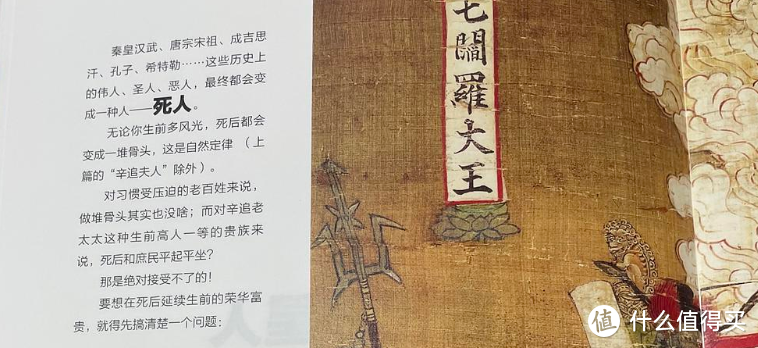 秦皇汉武、唐宗宋祖、成吉思
汗、孔子、希特勒……这些历史上
的伟人、圣人、恶人，最终都会变
成一种人——死人。
无论你生前多风光，死后都会
变成一堆骨头，这是自然定律（上
篇的“辛追夫人”除外）。
对习惯受压迫的老百姓来说，
做堆骨头其实也没啥；而对辛追老
太太这种生前高人一等的贵族来
说，死后和庶民平起平坐？
那是绝对接受不了的！
要想在死后延续生前的荣华富
贵，就得先搞清楚一个问题：
七閻羅大王
值 什么值得买